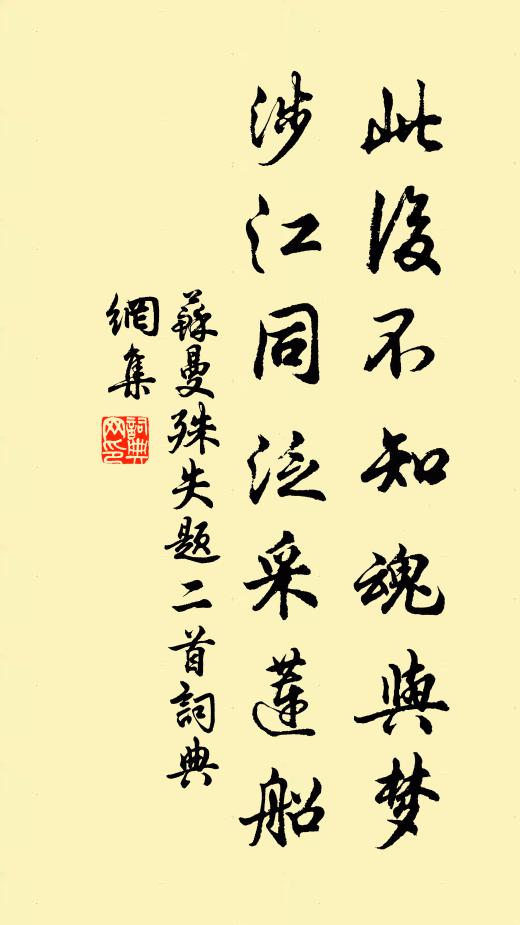 此後不知魂與梦
涉江同泛采蓮船
蘇曼殊失题二首詞典
網集
詞典
网印